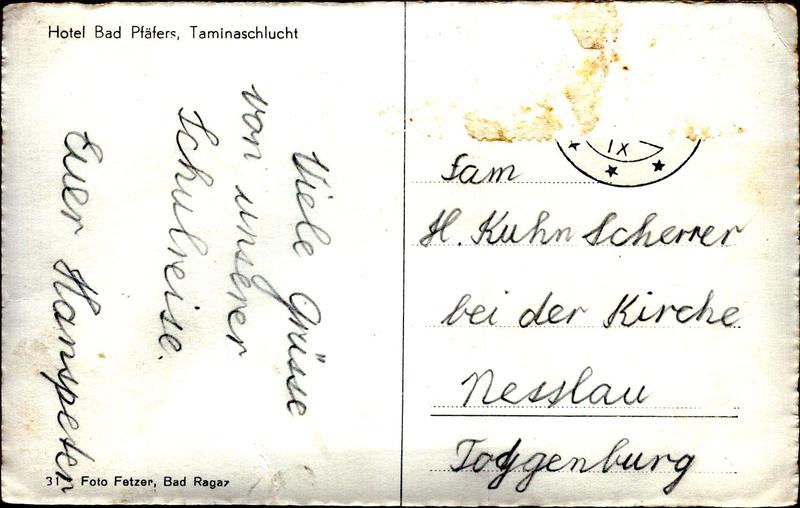 Hotel Bad Pfäfers, Taminaschlucht
Viele Grüsse
von unserer
Schulreise.
Euer Hanspeter
31 Foto Fetzer, Bad Ragaz
IX
Fam
H. Kuhn Scherrer
bei der Kirche
Nesslau
Toggenburg